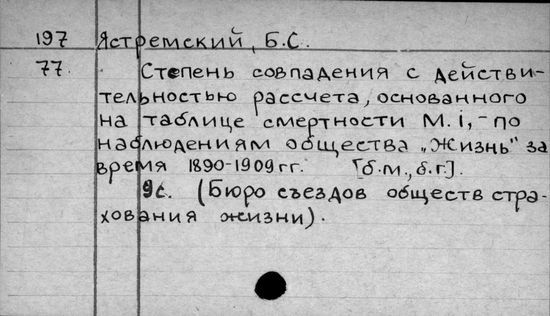 197 Ястремский, Б.С.
77. Степень совпадения с действи-
тельностью рассчета, основанного
на таблице смертности M. i, - по
наблюдениям общества „Жизнь" за
время 1890-1909 гг. [б.м., б.г.].
9с. (Бюро съездов обществ стра-
хования жизни).